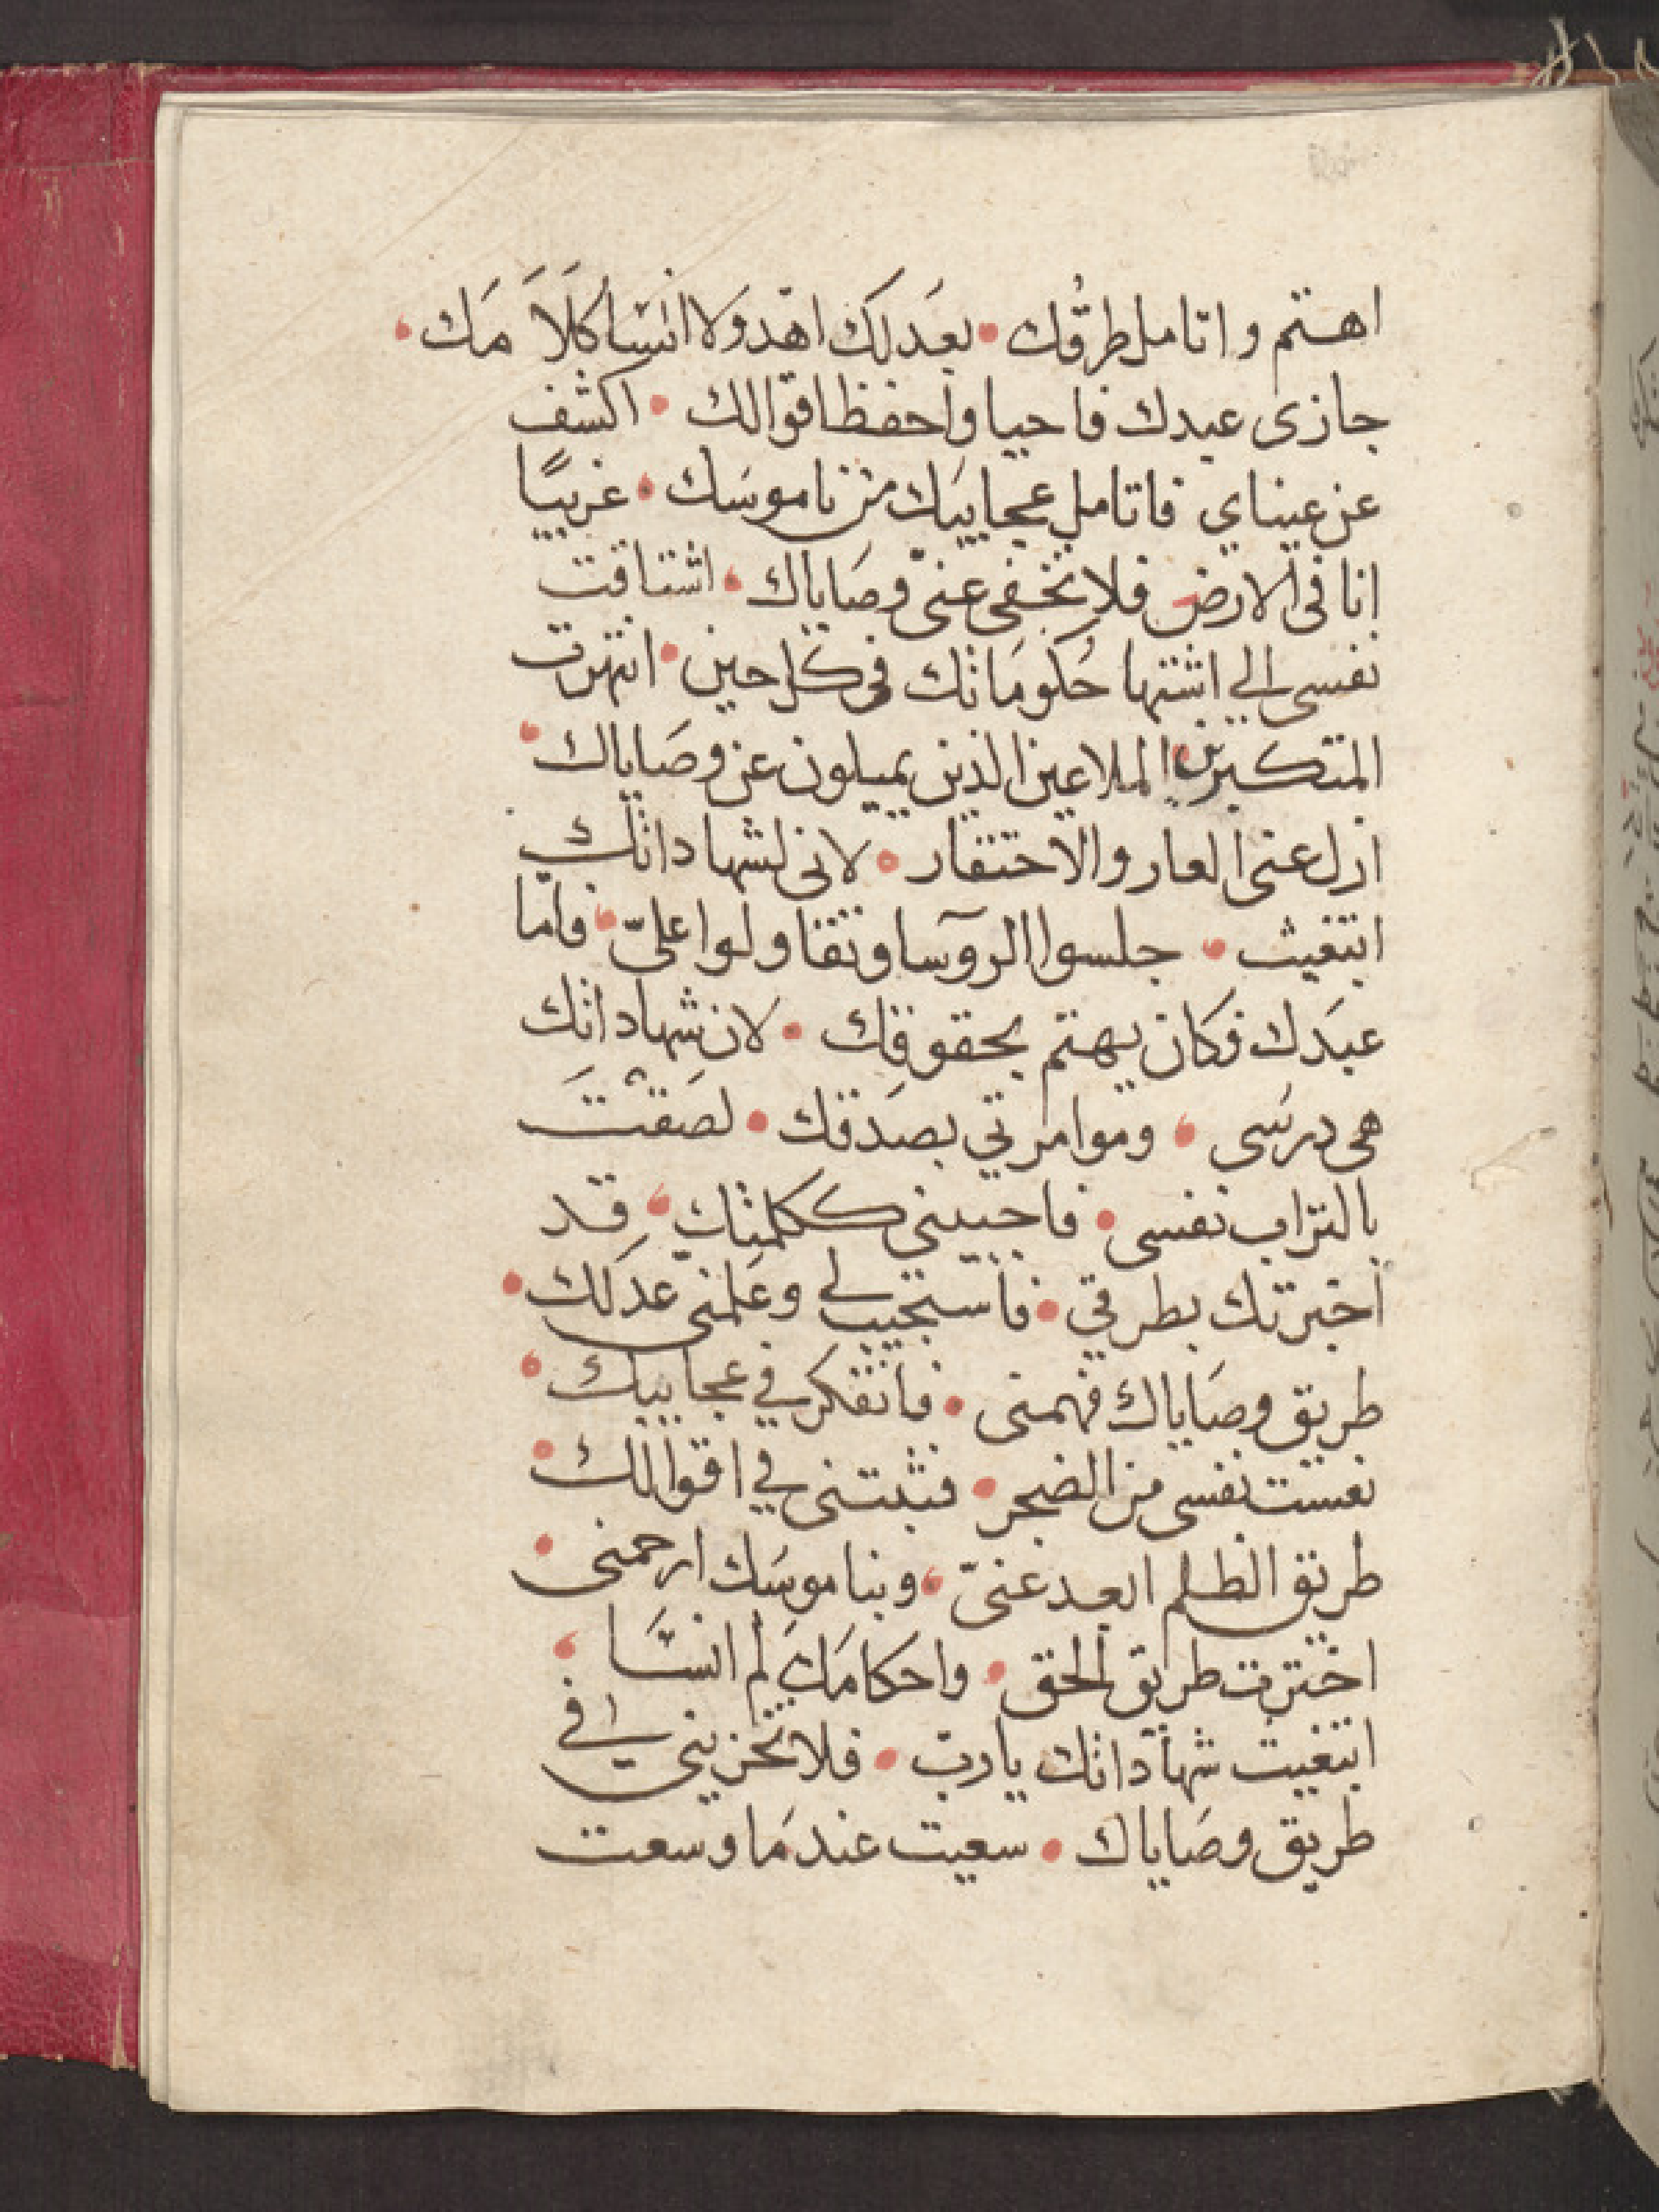 اهتم واتامل طرقك • بعَدلك اهّد وَلا انسَا كَلاَمَك •
جازى عبدك فاحيا واحفظ اقوالك • اكشف
عن عيناي فاتامل عجاييَك من ناموسَك • غريبًا
انا في الارض فلا تخفى عنّى وصَاياك • اشتاقت
نفسى الي اشتها حُكومَاتك في كل حين • انتهرت
المتكبرين الملاعين الذين يميلون عن وصَاياك •
ازل عنى العار والاحتقار • لانى لشهاداتك
ابتغيت • جلسوا الروٓسا وتقاولوا عليّ • فاما
عبدَك فكان يهتم بحقوقك • لان شهاداتك
هى درسَى • وموامرتي بصَدقك • لصَقتَ
بالتراب نفسى • فاحييني ككلمتك • قد
اخبرتك بطرقي • فاستجيب لي وعَلمنى عدلك •
طريق وصَاياك فهمنى • فاتفكر في عجاييك •
نعست نفسى من الضجر • فثبتنى في اقوالك •
طريق الظلم ابعد عنىّ • وبناموسَك ارحمنى •
اخترت طريق الحق • واحكامَك لم انسَا •
ابتغيت شهاداتك يارب • فلا تخزيني في
طريق وصَاياك • سعيت عندمَا وسعت